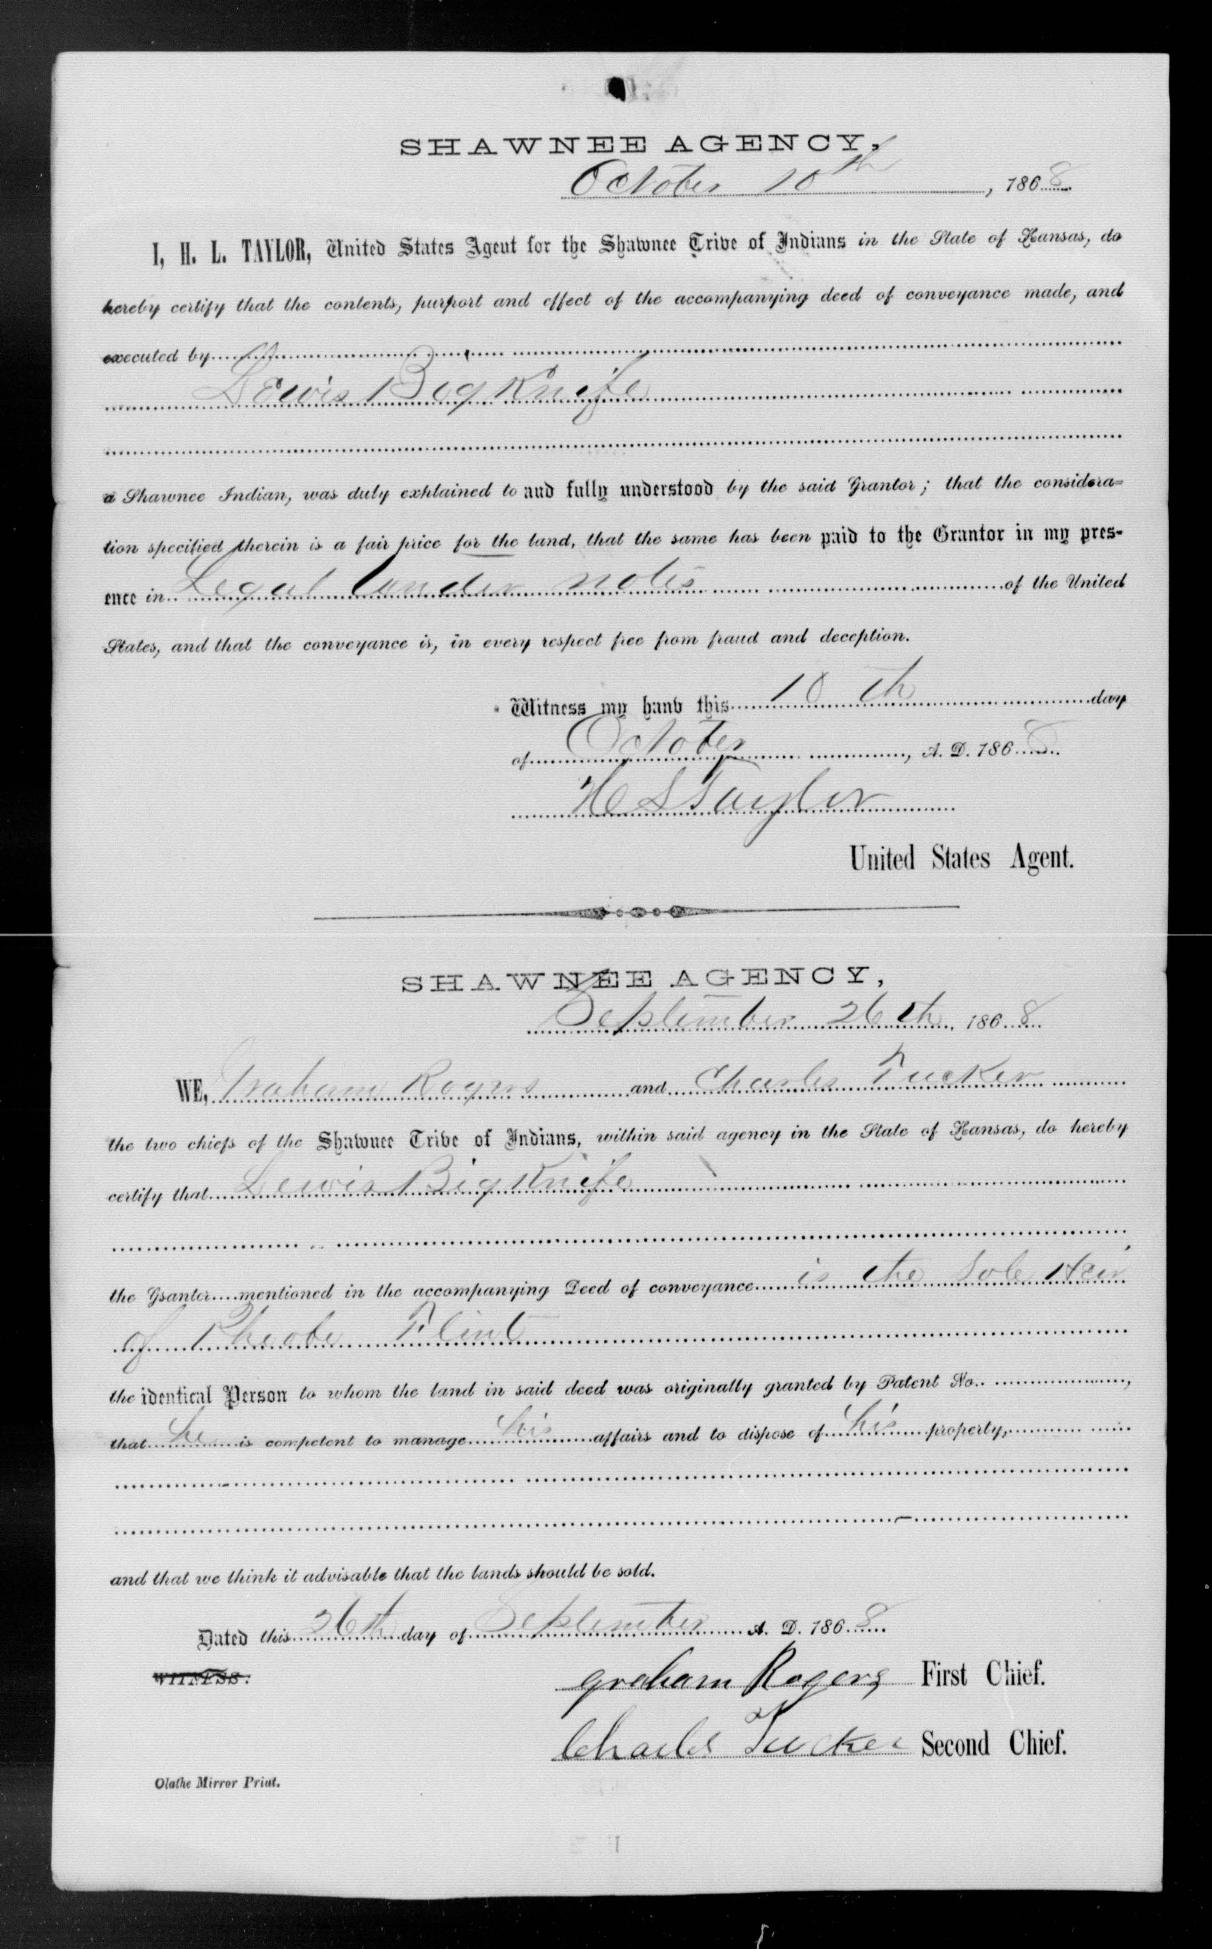 SHAWNEE AGENCY,
October 10th, 1868.
I, H. L. TAYLOR, United States Agent for the Shawnee Tribe of Indians in the State of Kansas, do
hereby certify that the contents, purport and effect of the accompanying deed of conveyance made, and
executed by
Lewis Big Knife
a Shawnee Indian, was duly explained to and fully understood by the said Grantor; that the considera-
tion specified therein is a fair price for the land, that the same has been paid to the Grantor in my pres-
ence in Legal tender notes of the United
States, and that the conveyance is, in every respect free from fraud and deception.
Witness my hand this 10th day
of October, A. D. 1868.
H L Taylor
United States Agent.
SHAWNEE AGENCY,
September 26th, 1868.
WE, Graham Rogers and Charles Tucker
the two chiefs of the Shawnee Tribe of Indians, within said agency in the State of Kansas, do hereby
certify that Lewis Big Knife
the Grantor mentioned in the accompanying Deed of conveyance is the Sole Heir
of Phoebe Flint
the identical Person to whom the land in said deed was originally granted by Patent No. ,
that he is competent to manage his affairs and to dispose of his property,
and that we think it advisable that the lands should be sold.
Dated this 26th day of September A. D. 1868
WITNESS:
graham Rogers First Chief.
Charles Tucker Second Chief.
Olathe Mirror Print.